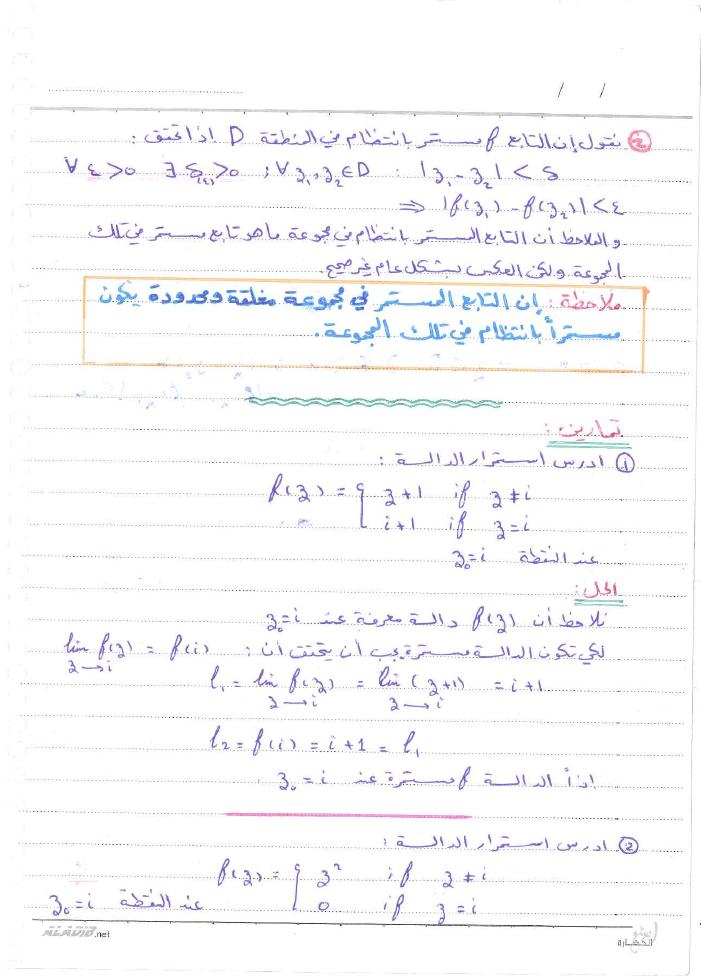 / /
② نقول إن التابع f مستمر بانتظام في المنطقة D إذا تحقق :
∀ ε>0 ∃ δ(ε)>0 ; ∀ z₁, z₂ ∈ D : |z₁ - z₂| < δ
⇒ |f(z₁) - f(z₂)| < ε
و الملاحظ أن التابع المستمر بانتظام في مجموعة ما هو تابع مستمر في تلك
المجموعة ولكن العكس بشكل عام غير صحيح.
ملاحظة : إن التابع المستمر في مجموعة مغلقة ومحدودة يكون
مستمراً بانتظام في تلك المجموعة.
تمارين :
① ادرس استمرار الدالة :
f(z) = { z+1 if z ≠ i
i+1 if z = i
عند النقطة z₀ = i
الحل :
نلاحظ أن f(z) دالة معرفة عند z₀ = i
لكي تكون الدالة مستمرة يجب أن يتحقق أن : lim f(z) = f(i)
z → i
l₁ = lim f(z) = lim (z+1) = i+1
z → i z → i
l₂ = f(i) = i+1 = l₁
إذاً الدالة f مستمرة عند z₀ = i
② ادرس استمرار الدالة :
f(z) = { z² if z ≠ i
0 if z = i عند النقطة z₀ = i
ALADIB.net
الحضارة